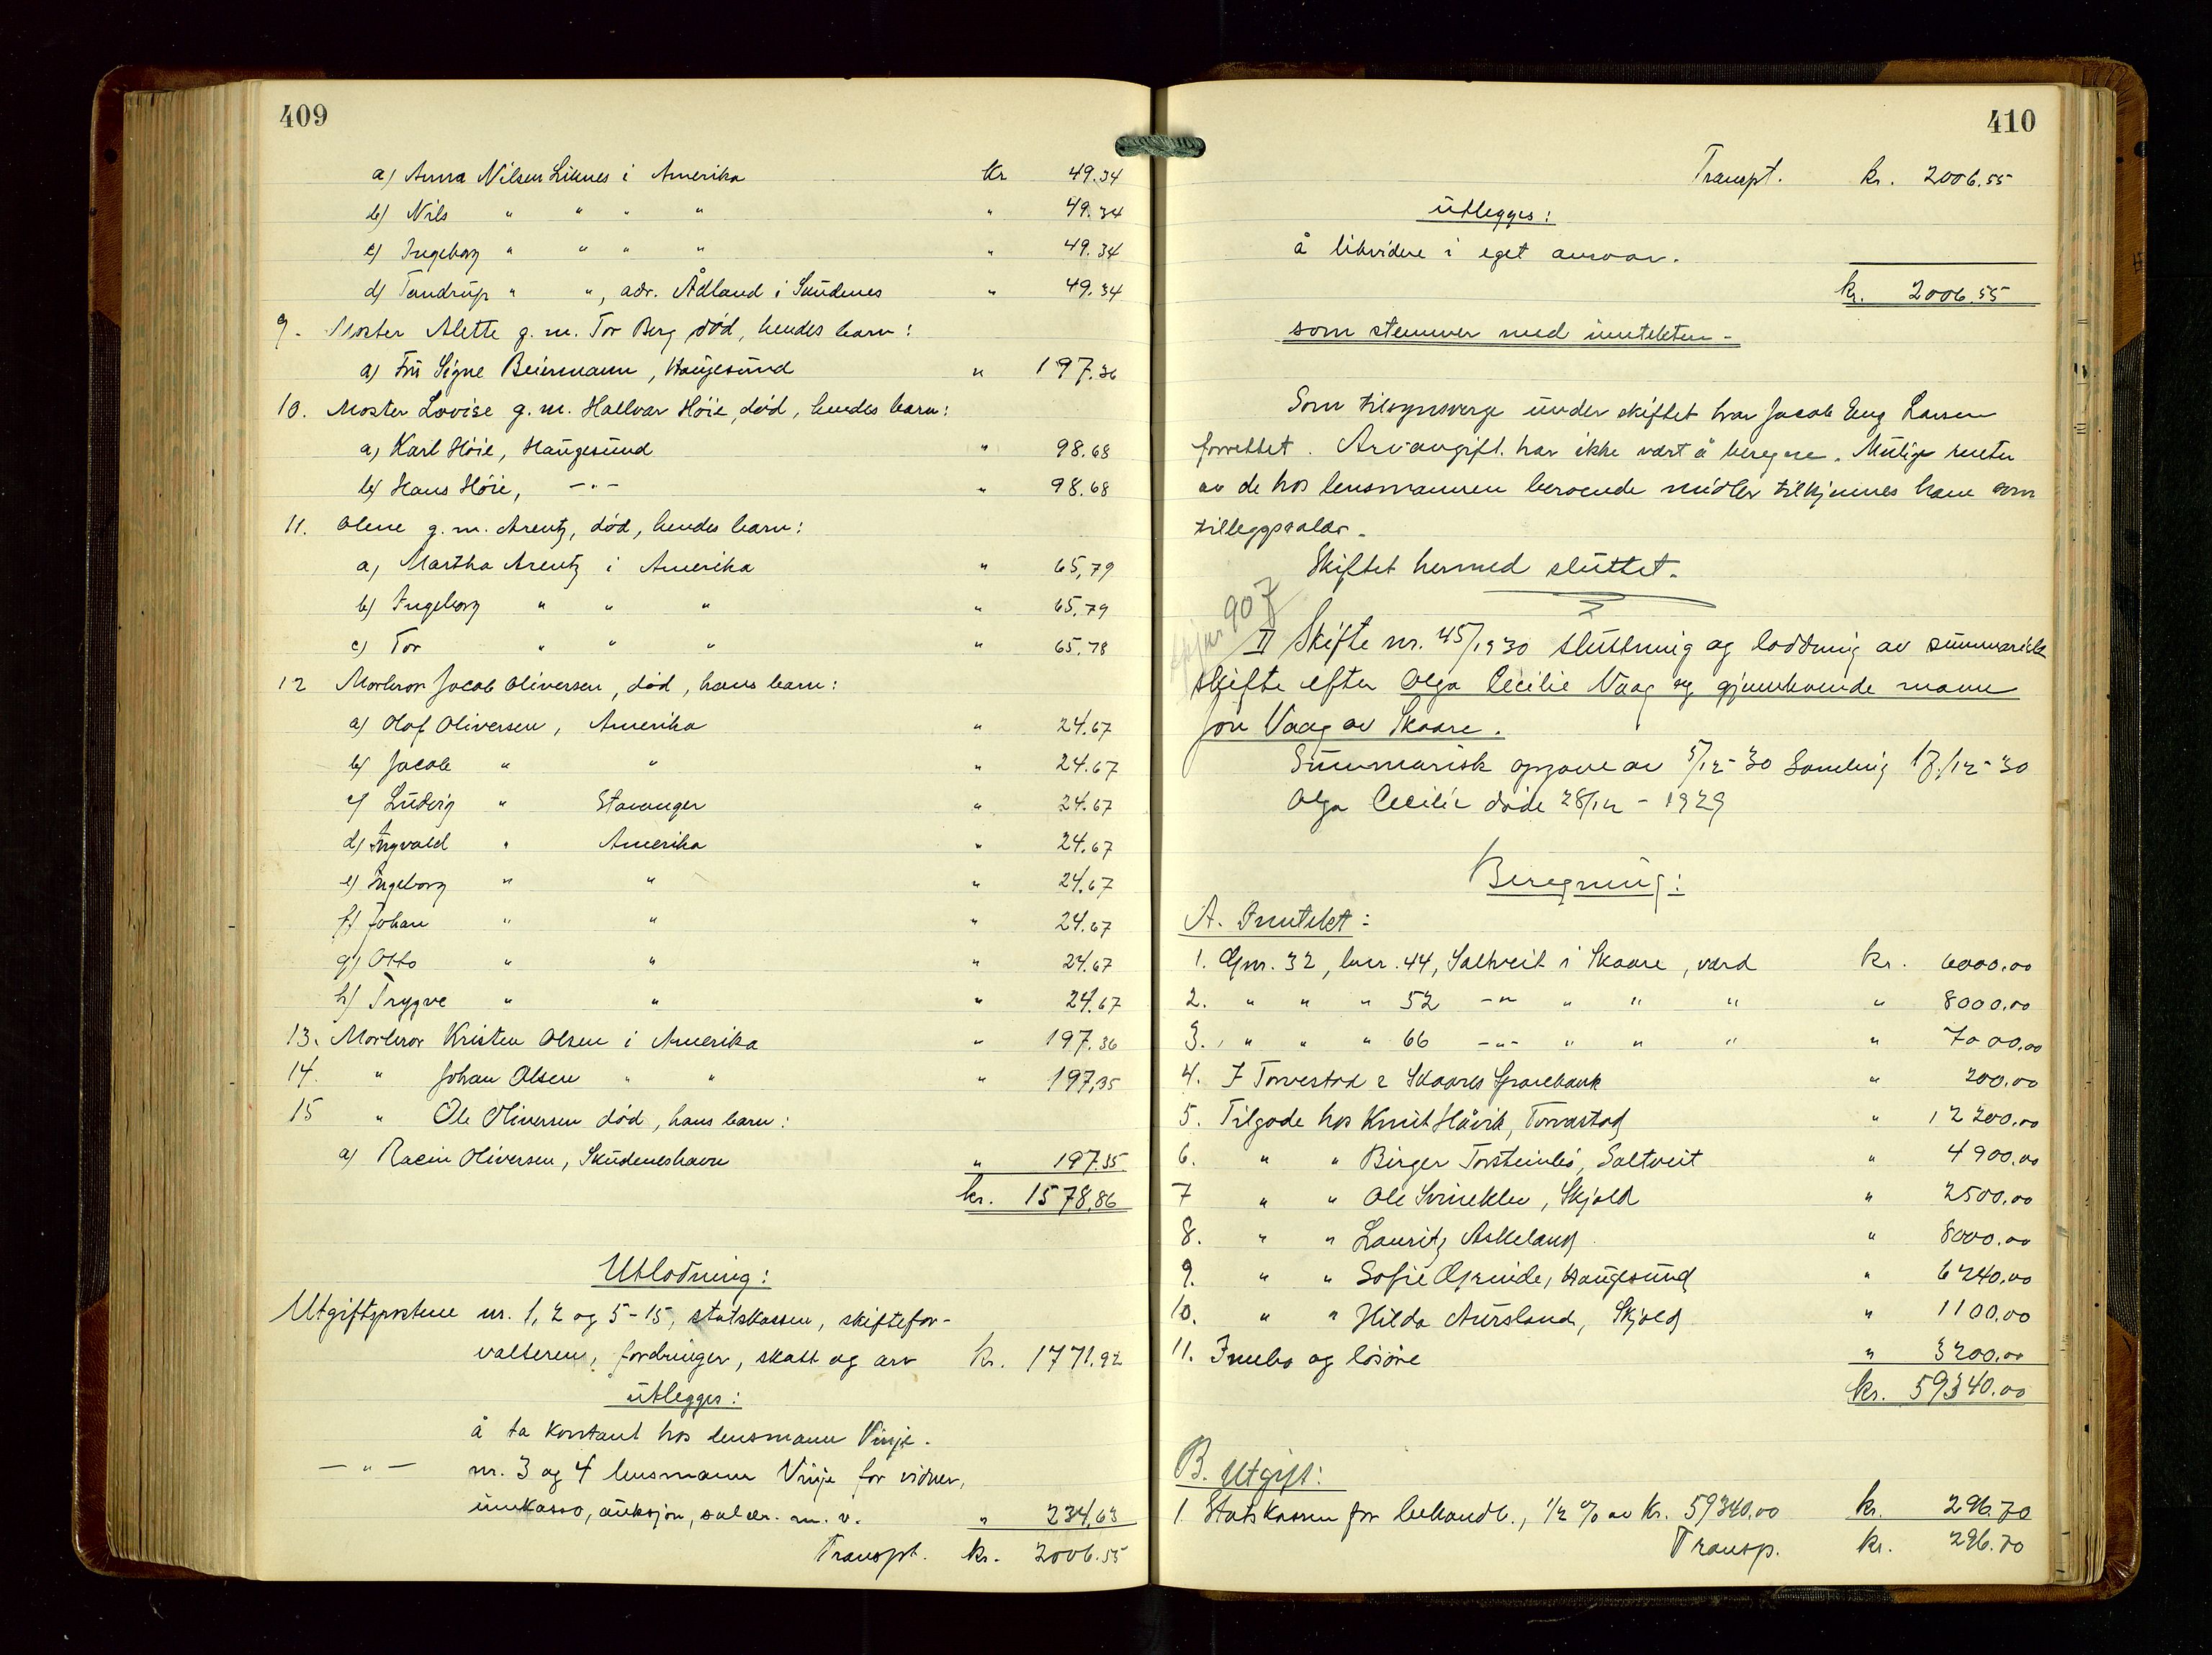 409
a) Anna Nilsen Liknes i Amerika kr 49.34
b) Nils " " " " " 49.34
c) Ingeborg " " " " " 49.34
d) Tandrup " ", adr. Ådland i Skudenes " 49.34
9. Moster Alette g. m. Tor Berg død, hendes barn:
a) Fru Signe Beiermann, Haugesund " 197.36
10. Moster Lovise g. m. Hallvar Höie, død, hendes barn:
a) Karl Höie, Haugesund " 98.68
b) Hans Höie, -"- " 98.68
11. Olene g. m. Arentz, død, hendes barn:
a) Martha Arentz i Amerika " 65,79
b) Ingeborg " " " " 65.79
c) Tor " " " " 65.78
12 Morbror Jacob Oliversen, død, hans barn:
a) Olaf Oliversen, Amerika " 24.67
b) Jacob " " " 24.67
c) Ludvig " Stavanger " 24.67
d) Ingvald " Amerika " 24.67
e) Ingeborg " " " 24.67
f) Johan " " " 24.67
g) Otto " " " 24.67
h) Trygve " " " 24.67
13. Morbror Kristen Olsen i Amerika " 197.36
14. " Johan Olsen " " " 197,35
15 " Ole Oliversen død, hans barn:
a) Oliversen, Skudeneshavn " 197.35
kr. 1578,86
Utlodning:
Utgiftspostene nr. 1, 2 og 5-15, statskassen, skiftefor-
valteren, fordringer, skatt og arv kr. 1771.92
utlegges:
å ta kontant hos lensmann Vinje.
- " - nr. 3 og 4 lensmann Vinje for vidner,
innkasso, auksjon, salær. m. v. " 234,63
Transpt. kr. 2006.55
410
Transpt. kr. 2006.55
utlegges:
å likvidere i eget ansvar.
kr. 2006.55
som stemmer med inntekten.
Som tilsynsverge under skiftet har Jacob Eng Larsen
forrettet. Arvavgift har ikke vært å beregne. Mulige renter
av de hos lensmannen beroende midler tilkjennes ham som
tilleggssalær.
Skiftet hermed sluttet.
907
II Skifte nr. 45/1930 sluttning og loddning av summarisk
skifte efter Olga Cecilie Vaag og gjenlevende mann
Jon Vaag av Skaare.
Summarisk opgave av 5/12-30 Samling 17/12-30
Olga Cecilie døde 28/12 - 1929
Beregning:
A. Inntekt:
1. Gnr. 32, bnr. 44, Saltveit i Skaare, verd kr. 6000.00
2. " " " 52 -"- " " " " 8000.00
3. " " " 66 -"- " " " " 7000.00
4. I Torvestad & Skaares Sparebank " 200.00
5. Tilgode hos Knut Håvik, Torvastad " 12200.00
6. " " Birger Torsteinbö, Saltveit " 4900.00
7 " " Ole Svineklev, Skjold " 2500.00
8. " " Lauritz Askeland " 8000.00
9. " " Sofie Grinde, Haugesund " 6240.00
10. " " Hilda Aursland, Skjold " 1100.00
11. Innbo og lösöre " 3200.00
kr. 59340.00
B. Utgift:
1 Statskassen for behandl., 1/2 % av kr. 59340.00 kr. 296.70
Transp. kr. 296.70